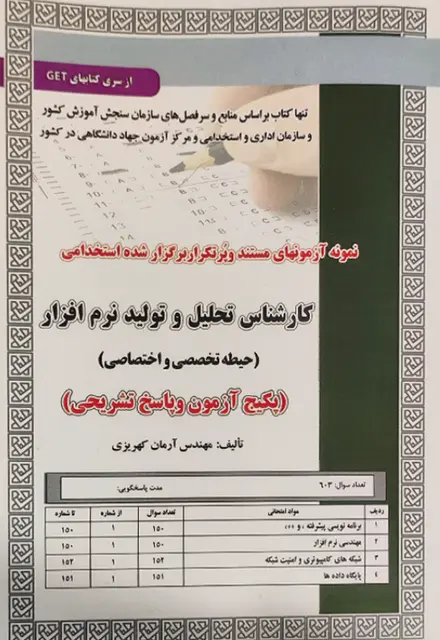 از سری کتابهای GET
تنها کتاب براساس منابع و سرفصل‌های سازمان سنجش آموزش کشور
و سازمان اداری و استخدامی و مرکز آزمون جهاد دانشگاهی در کشور
نمونه آزمونهای مستند و پرتکرار برگزار شده استخدامی
کارشناس تحلیل و تولید نرم افزار
(حیطه تخصصی و اختصاصی)
(پکیج آزمون و پاسخ تشریحی)
تألیف: مهندس آرمان کهریزی
تعداد سوال: ۶۰۳ مدت پاسخگویی:
ردیف مواد امتحانی تعداد سوال از شماره تا شماره
۱ برنامه نویسی پیشرفته ، و ،،، ۱۵۰ ۱ ۱۵۰
۲ مهندسی نرم افزار ۱۵۰ ۱ ۱۵۰
۳ شبکه های کامپیوتری و امنیت شبکه ۱۵۲ ۱ ۱۵۲
۴ پایگاه داده ها ۱۵۱ ۱ ۱۵۱